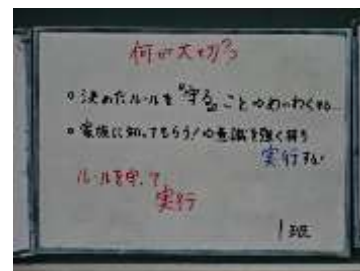 何が大切?
○ 決めたルールを"守る"こと
○ 家族に知ってもらう!の意識を強く持ち
実行する!
ルールを守って
実行
1班